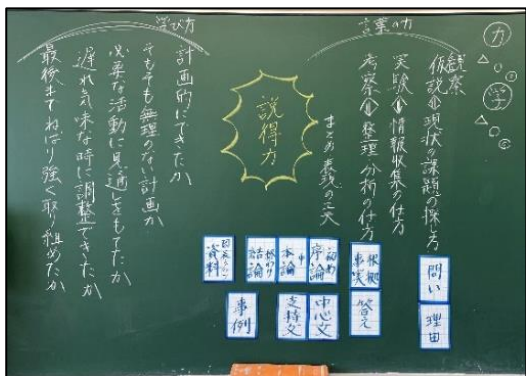 力
学
言葉の力
観察
仮説⇔現状の課題の探し方
実験⇔情報収集の仕方
考察⇔整理・分析の仕方
まとめ 表現の工夫
説得力
学び方
計画的にできたか
そもそも無理のない計画か
必要な活動に見通しをもてたか
遅れ気味な時に調整できたか
最後までねばり強く取り組めたか
問い
理由
根拠
事実
答え
初め
序論
中心文
中
本論
支持文
終わり
結論
資料
事例